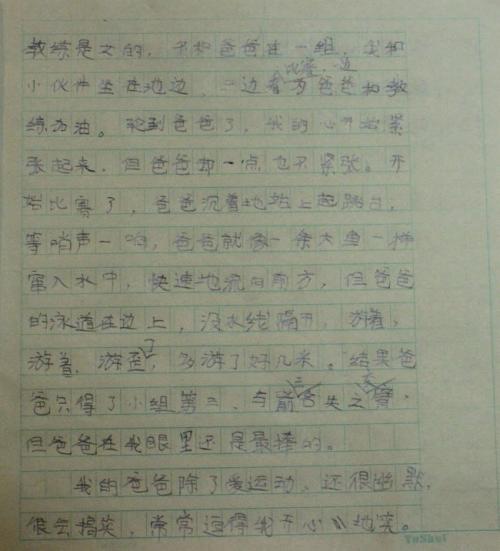 教练是女的，不和爸爸在一组，我和
小伙伴坐在池边，一边看比赛，一边为爸爸和教
练加油。轮到爸爸了，我的心开始紧
张起来，但爸爸却一点也不紧张。开
始比赛了，爸爸沉着地站上起跳台，
等哨声一响，爸爸就像一条大鱼一样
窜入水中，快速地流向前方，但爸爸
的泳道在边上，没水线隔开，游着，
游着，游歪了，多游了好几米。结果爸
爸只得了小组第二，与前三失之交臂，
但爸爸在我眼里还是最棒的。
我的爸爸除了爱运动，还很幽默，
很会搞笑，常常逗得我开心地笑。
YuShui